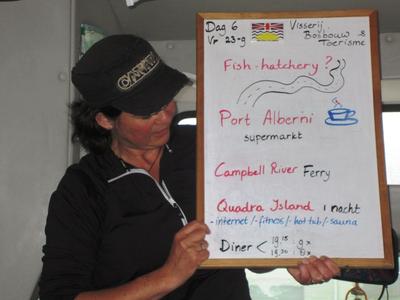 CANADA
Dag 6
Vr 23-9
Visserij
Bosbouw &
Toerisme
Fish-hatchery?
Port Alberni
supermarkt
Campbell River Ferry
Quadra Island 1 nacht
-internet/-fitness/-hot tub/-sauna
Diner < 19.15 : 9x
19.30 : 8x